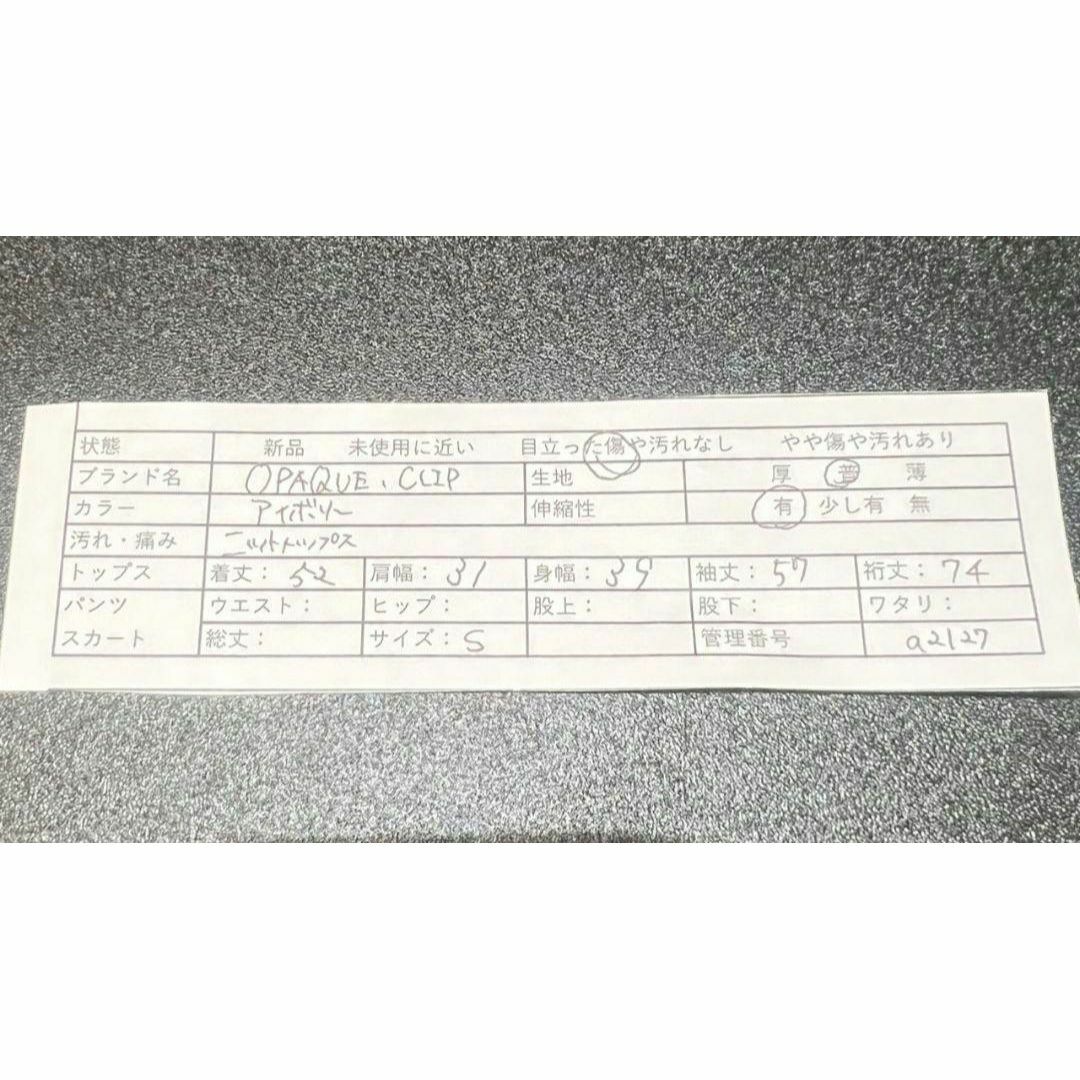 状態 新品 未使用に近い 目立った傷や汚れなし やや傷や汚れあり
ブランド名 OPAQUE、CLIP 生地 厚 普 薄
カラー アイボリー 伸縮性 有 少し有 無
汚れ・痛み ニットトップス
トップス 着丈：52 肩幅：31 身幅：39 袖丈：57 裄丈：74
パンツ ウエスト： ヒップ： 股上： 股下： ワタリ：
スカート 総丈： サイズ：S 管理番号 a2127